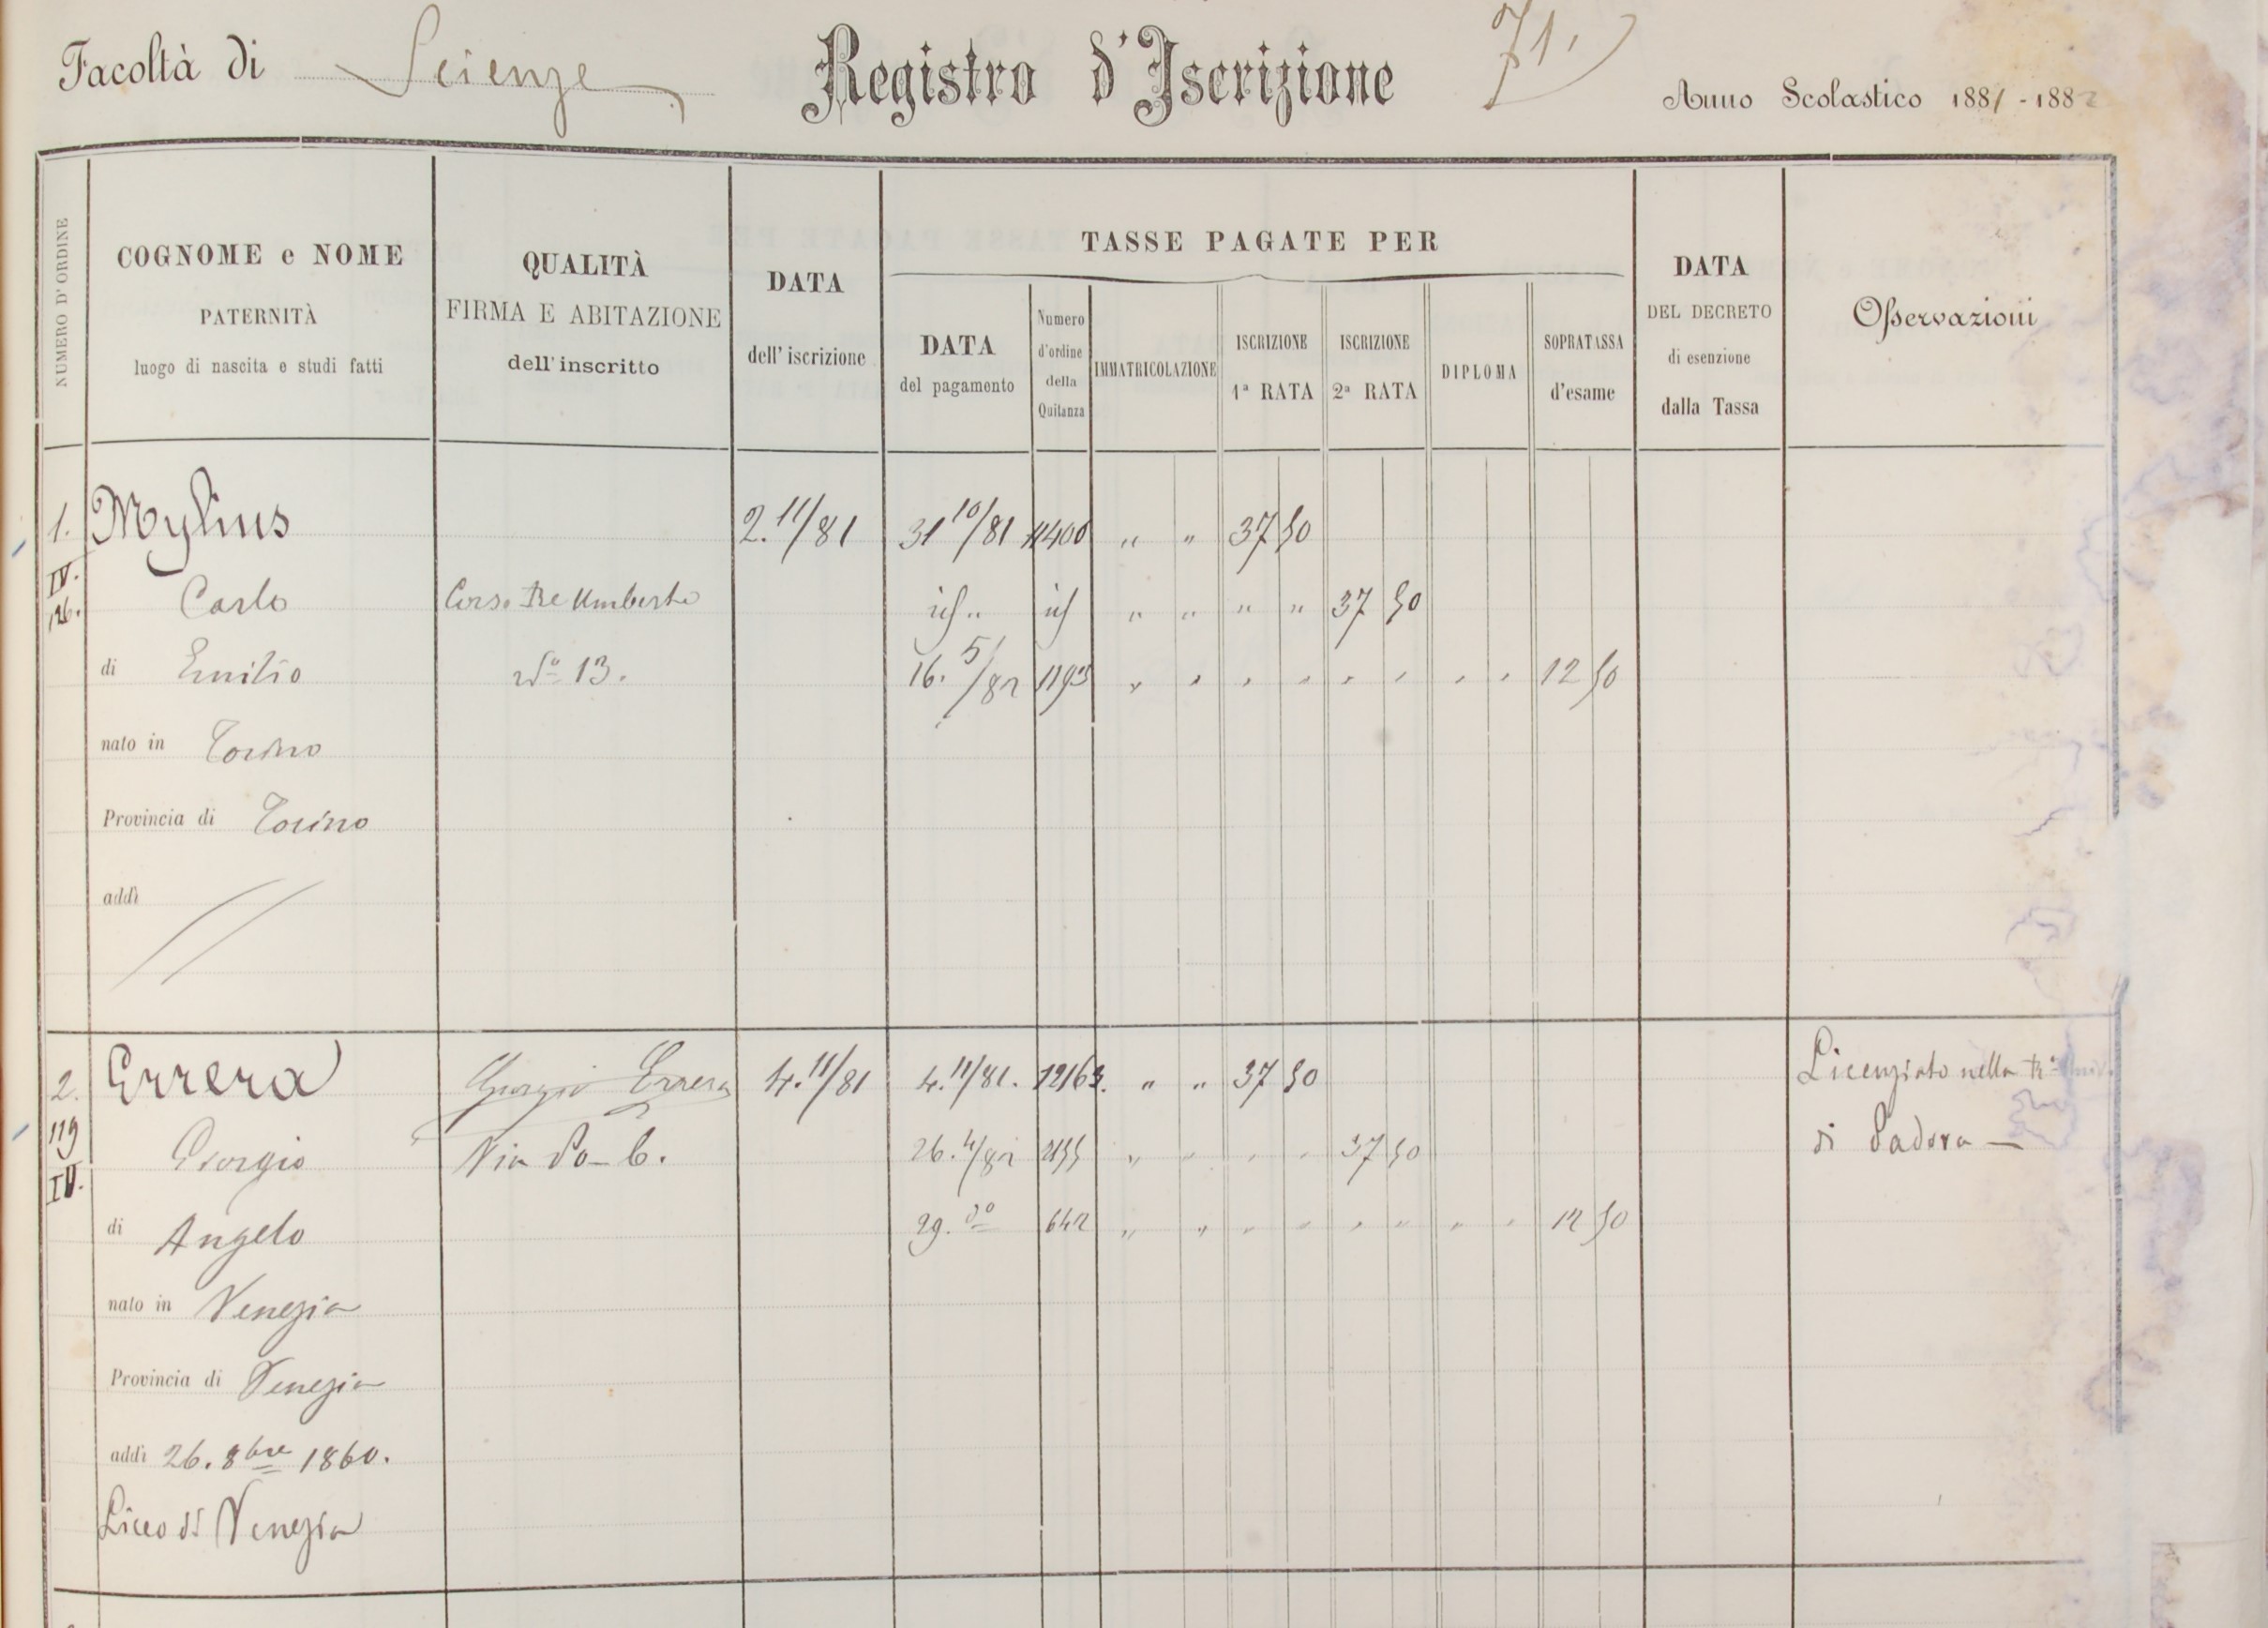 Facoltà di Scienze Registro d'Iscrizione 71. Anno Scolastico 1881-1882
NUMERO D'ORDINE
COGNOME e NOME
PATERNITÀ
luogo di nascita e studi fatti
QUALITÀ
FIRMA E ABITAZIONE
dell'inscritto
DATA
dell'iscrizione
TASSE PAGATE PER
DATA
del pagamento
Numero
d'ordine
della
Quitanza
IMMATRICOLAZIONE
ISCRIZIONE
1ª RATA
ISCRIZIONE
2ª RATA
DIPLOMA
SOPRATASSA
d'esame
DATA
DEL DECRETO
di esenzione
dalla Tassa
Osservazioni
1. Mylius 2. 11/81 31 10/81 11400 " " 37 50
IV.
126. Carlo Corso Re Umberto id " id " " " " 37 50
di Emilio Nº 13. 16. 5/82 1193 " " " " " " " " 12 50
nato in Torino
Provincia di Torino
addì
2. Errera Giorgio Errera 4. 11/81 4. 11/81. 12163. " " 37 50 Licenziato nella Rª Univ.
119 Giorgio Via Po_ 6. 26. 4/82 2155 " " " " 37 50 di Padova —
IV.
di Angelo 29. dº 642 " " " " " " " " 12 50
nato in Venezia
Provincia di Venezia
addì 26. 8bre 1860.
Liceo di Venezia